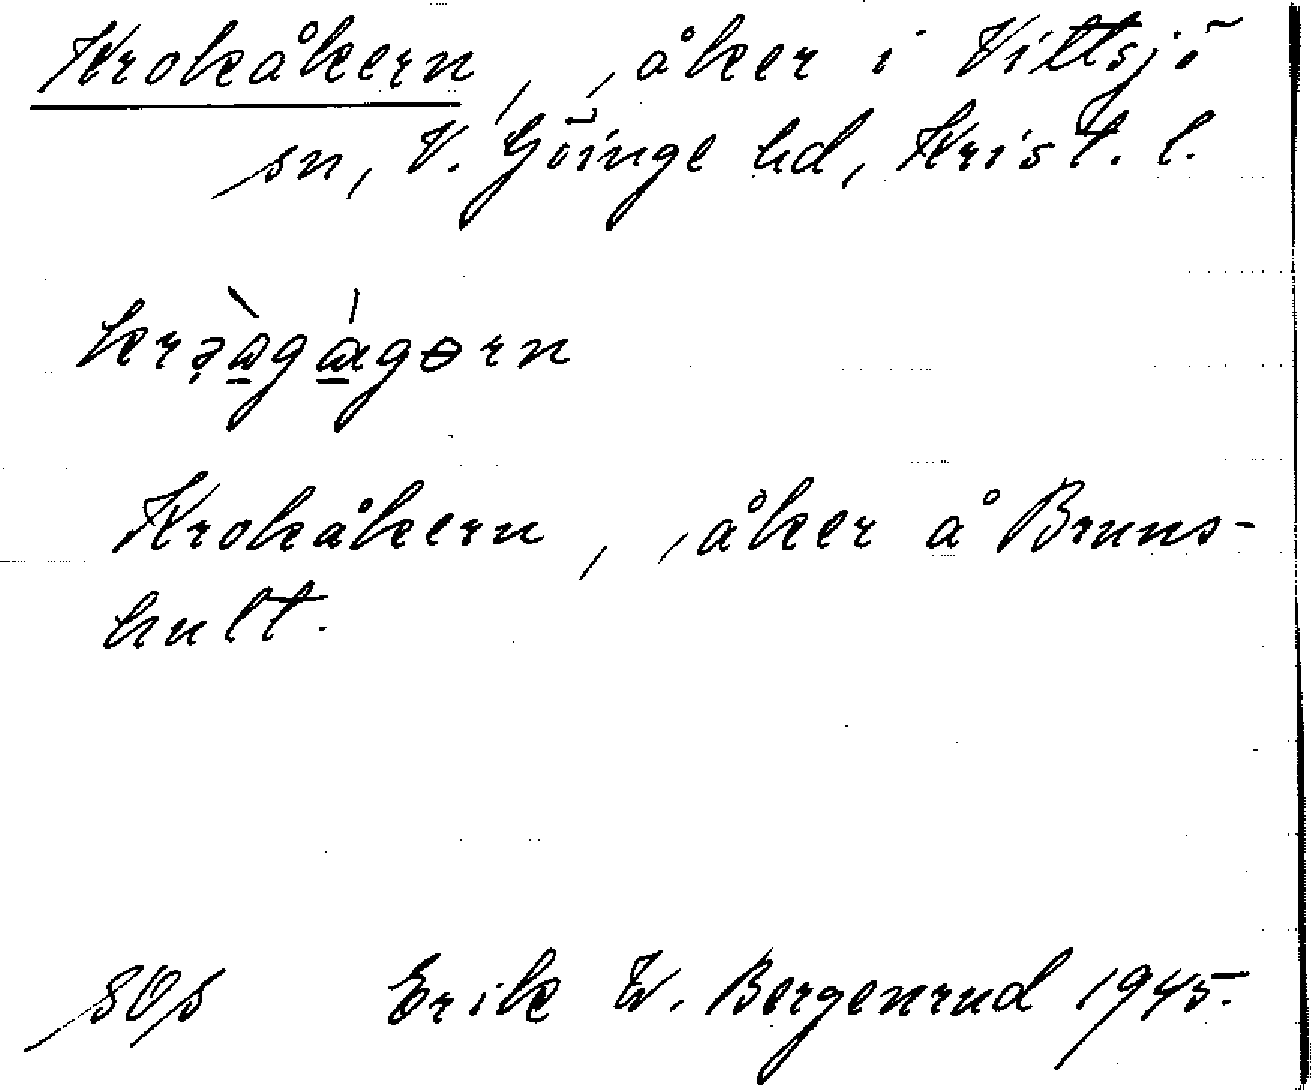 Krokåkern, , åker i Vittsjö
sn, V. Göinge hd, Krist. l.
Krokåkern, , åker å Bruns-
hult.
Erik W. Bergenrud 1945.